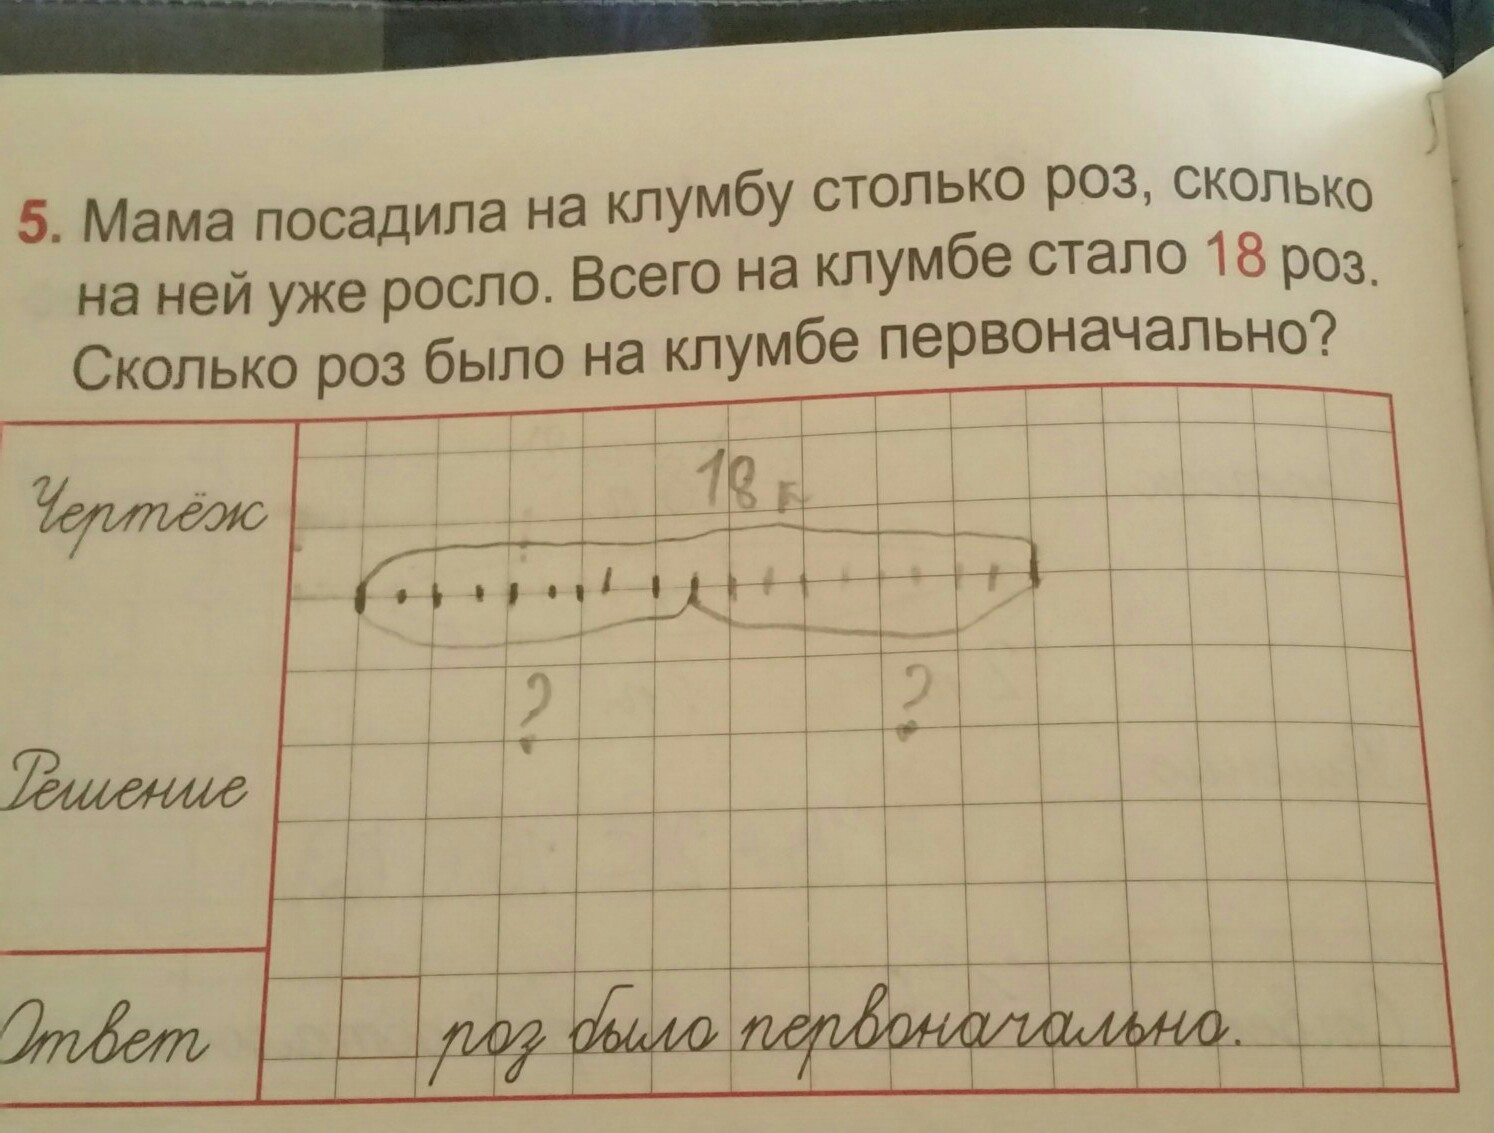 5. Мама посадила на клумбу столько роз, сколько
на ней уже росло. Всего на клумбе стало 18 роз.
Сколько роз было на клумбе первоначально?
Чертёж
18 г
? ?
Решение
Ответ
роз было первоначально.